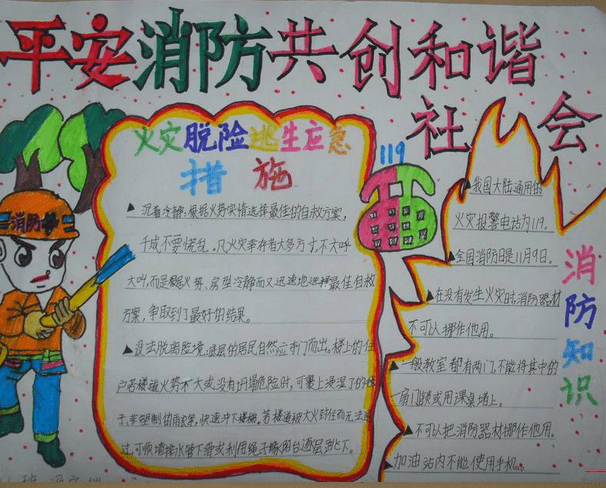 平安消防共创和谐
社会
火灾脱险逃生应急
措施
119
消防
▲沉着冷静,根据火势实情选择最佳的自救方案,
千成不要慌乱。凡火幸存者大多方寸,不大呼
大叫,而是根据火势、房型冷静而又迅速地选择最佳自救
方案,争取到了最好的结果。
▲设法脱离险境:底层的居民自然应夺门而出。楼上的住
户若楼道火势不大或没有坍塌危险时,可裹上浸湿了的
快速冲下楼梯。若楼道被大火封住而无法通
过,可顺墙排水管下滑或利用绳子缘阳台逐层
▲我国大陆通用的
火灾报警电话为119。
▲全国消防日是11月9日。
▲在没有发生火灾时,消防器材
不可以挪作他用。
▲一般教室都有两门,不能将其中的
一扇门锁或用课桌堵上。
▲不可以把消防器材挪作他用。
▲加油站内不能使用手机。
消防知识